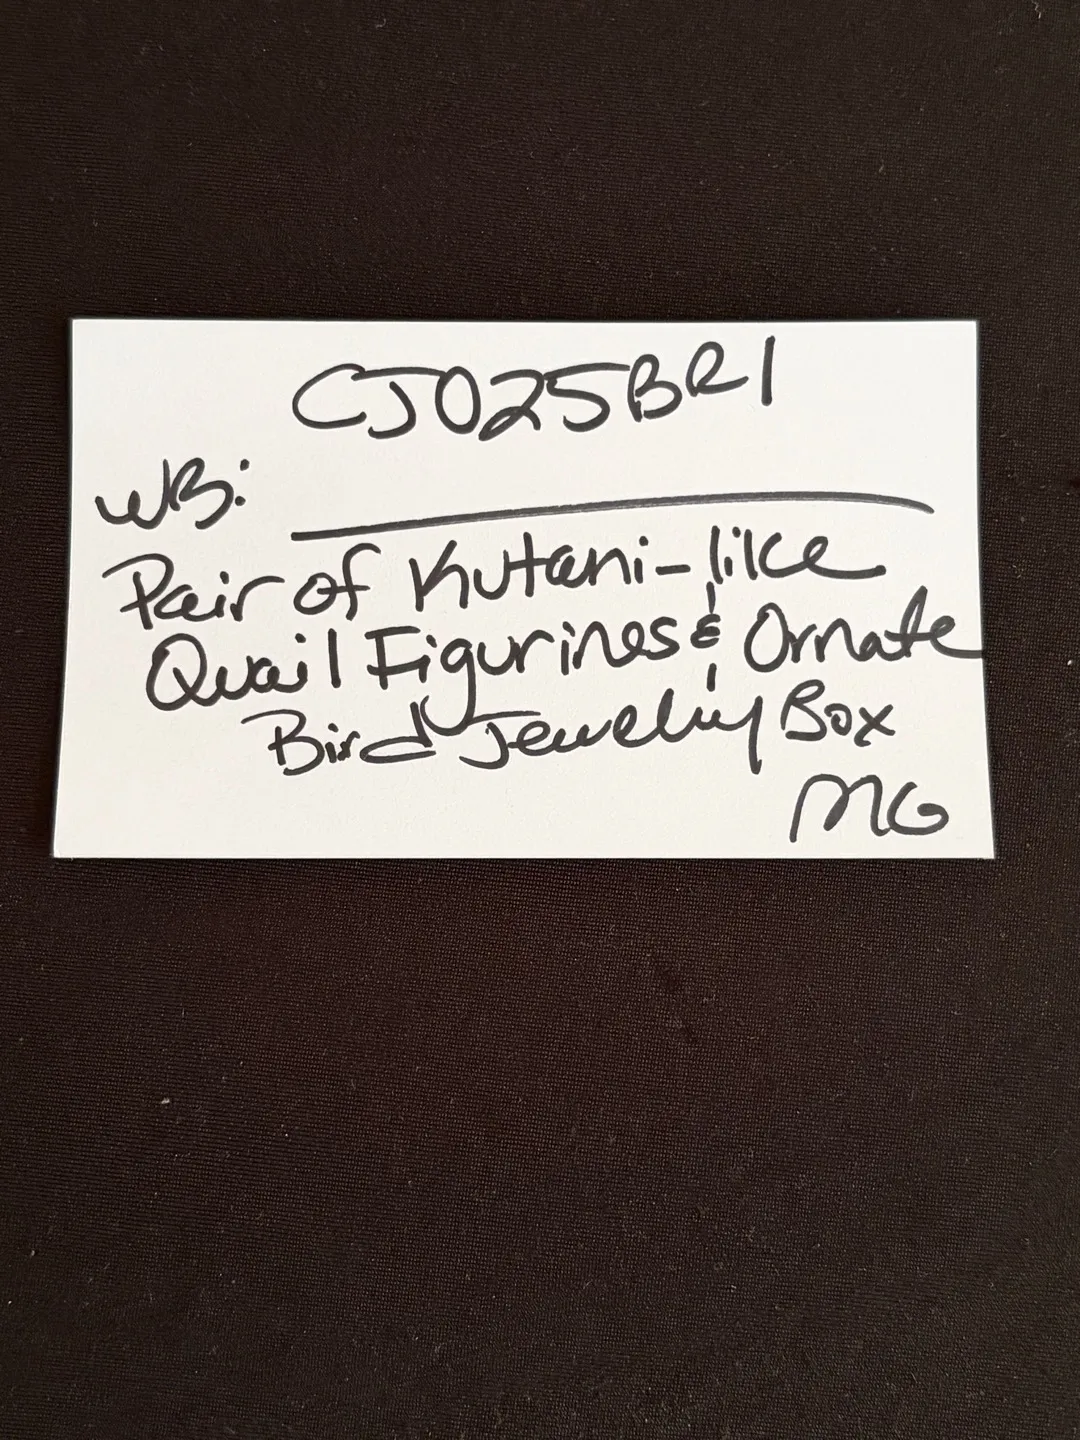 CJ025BR1
WB:
Pair of Kutani-like
Quail Figurines & Ornate
Bird Jewelry Box
MG